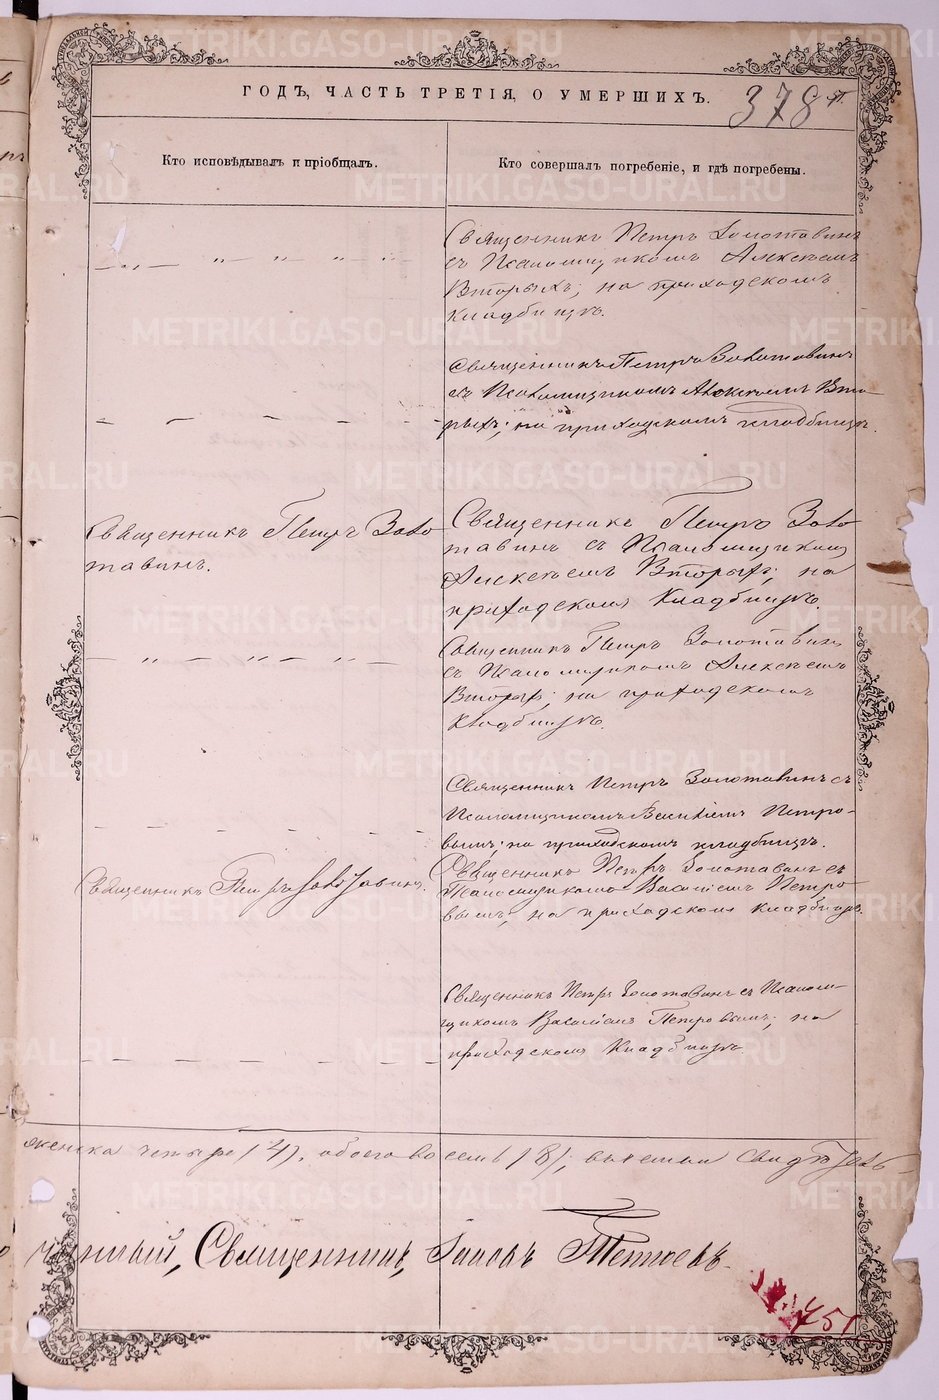 ГОДЪ, ЧАСТЬ ТРЕТІЯ, О УМЕРШИХЪ.
378
Кто исповѣдывалъ и пріобщалъ.
Кто совершалъ погребеніе, и гдѣ погребены.
Священникъ Петръ Золотавинъ
съ Псаломщикомъ Алексѣемъ
Вторыхъ; на приходскомъ
кладбищѣ.
Священникъ Петръ Золотавинъ
съ Псаломщикомъ Алексѣемъ Вто-
рыхъ; на приходскомъ кладбищѣ.
Священникъ Петръ Золо
тавинъ.
Священникъ Петръ Золо
тавинъ съ Псаломщикомъ
Алексѣемъ Вторыхъ; на
приходскомъ кладбищѣ.
Священникъ Петръ Золотавинъ
съ Псаломщикомъ Алексѣемъ
Вторыхъ; на приходскомъ
кладбищѣ.
Священникъ Петръ Золотавинъ съ
Псаломщикомъ Василіемъ Петро-
вымъ; на приходскомъ кладбищѣ.
Священникъ Петръ Золотавинъ.
Священникъ Петръ Золотавинъ съ
Псаломщикомъ Василіемъ Петро
вымъ; на приходскомъ кладбищѣ.
Священникъ Петръ Золотавинъ съ Псалом-
щикомъ Василіемъ Петровымъ; на
приходскомъ Кладбищѣ.
женска четыре (4), обоего восемь (8);
Священникъ,
451
METRIKI.GASO-URAL.RU